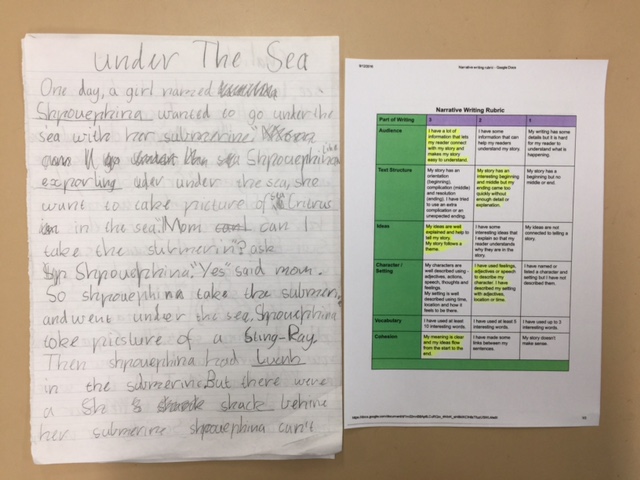 under The Sea
One day, a girl named
Shpouephina wanted to go under the
sea with her submerine.
Shpouephina like
exporting under the sea, she
want to take picture of Critrus
in the sea. "Mom can I
take the submerin"? ask
Shpouephina. "Yes" said mom.
So shpouephina take the submerin,
and went under the sea. Shpouephina
toke picsture of a Sting-Ray.
Then shpouephina had Lunh
in the submerine. But there were
a shack behine
her submerine shpouephina can't
Narrative writing rubric - Google Docs
Narrative Writing Rubric
Part of Writing 3 2 1
Audience
I have a lot of information that lets my reader connect with my story and makes my story easy to understand.
I have some information that can help my readers understand my story.
My writing has some details but it is hard for my reader to understand what is happening.
Text Structure
My story has an orientation (beginning), complication (middle) and resolution (ending). I have tried to use an extra complication or an unexpected ending.
My story has an interesting beginning and middle but my ending came too quickly without enough detail or explanation.
My story has a beginning but no middle or end.
Ideas
My ideas are well explained and help to tell my story. My story follows a theme.
I have some interesting ideas that I explain so that my reader understands why they are in the story.
My ideas are not connected to telling a story.
Character / Setting
My characters are well described using - adjectives, actions, speech, thoughts and feelings. My setting is well described using time, location and how it feels to be there.
I have used feelings, adjectives or speech to describe my character. I have described my setting with adjectives, location or time.
I have named or listed a character and setting but I have not described them.
Vocabulary
I have used at least 10 interesting words.
I have used at least 5 interesting words.
I have used up to 3 interesting words.
Cohesion
My meaning is clear and my ideas flow from the start to the end.
I have made some links between my sentences.
My story doesn't make sense.